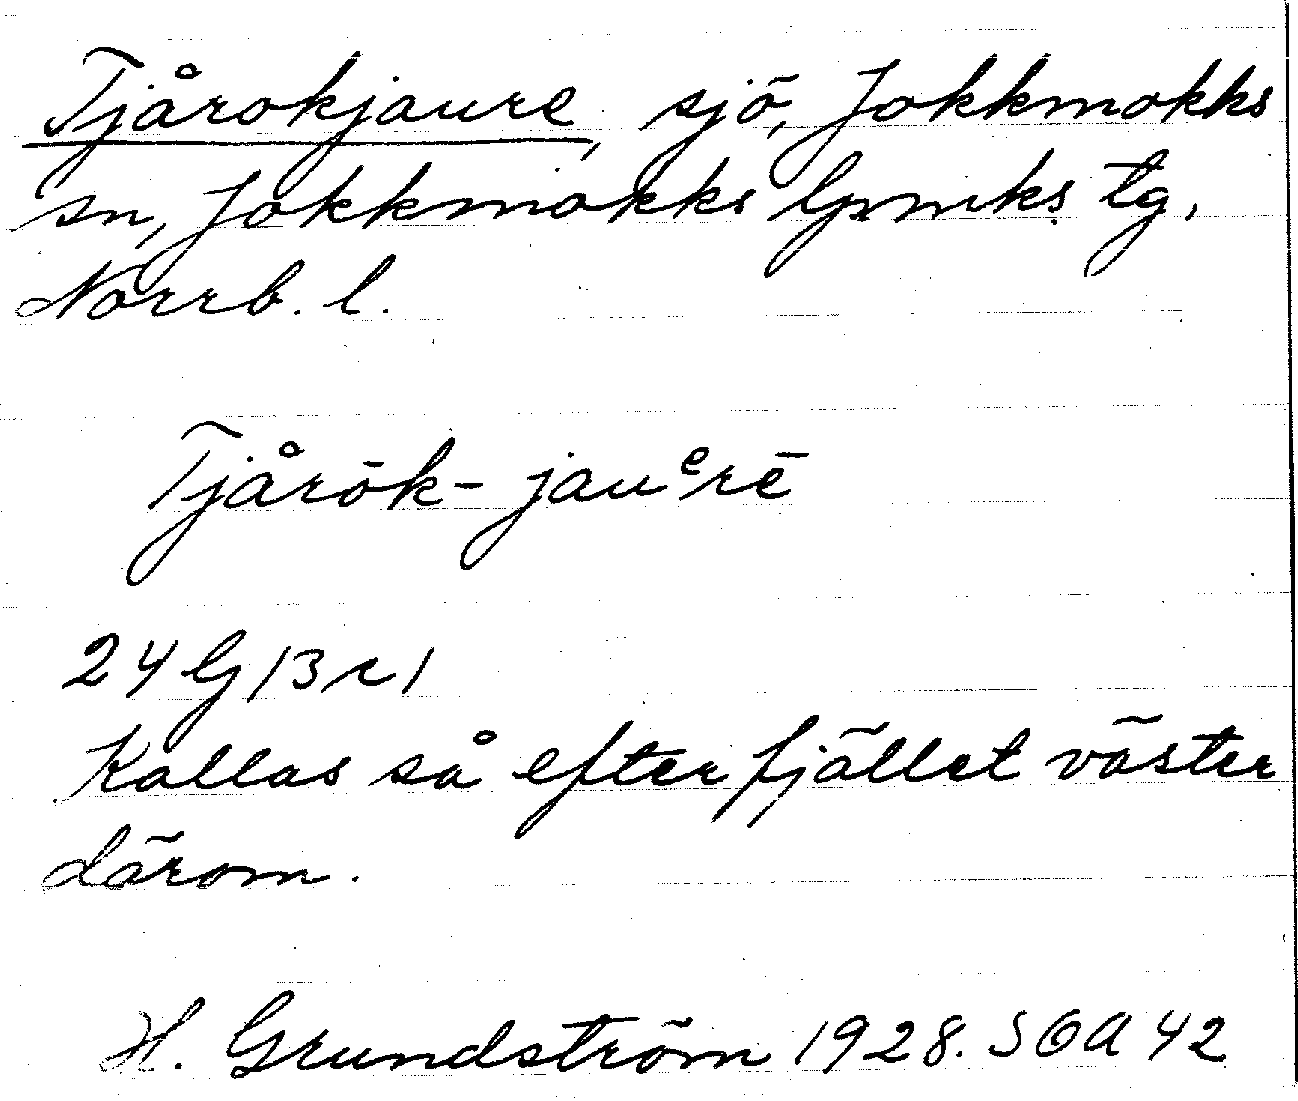 Tjårokjaure, sjö, Jokkmokks
sn, Jokkmokks lpmks tg,
Norrb. l.
Tjårōk-jauᵉrē
24 G 13 r 1
Kallas så efter fjället väster
därom.
H. Grundström 1928. SOA 42